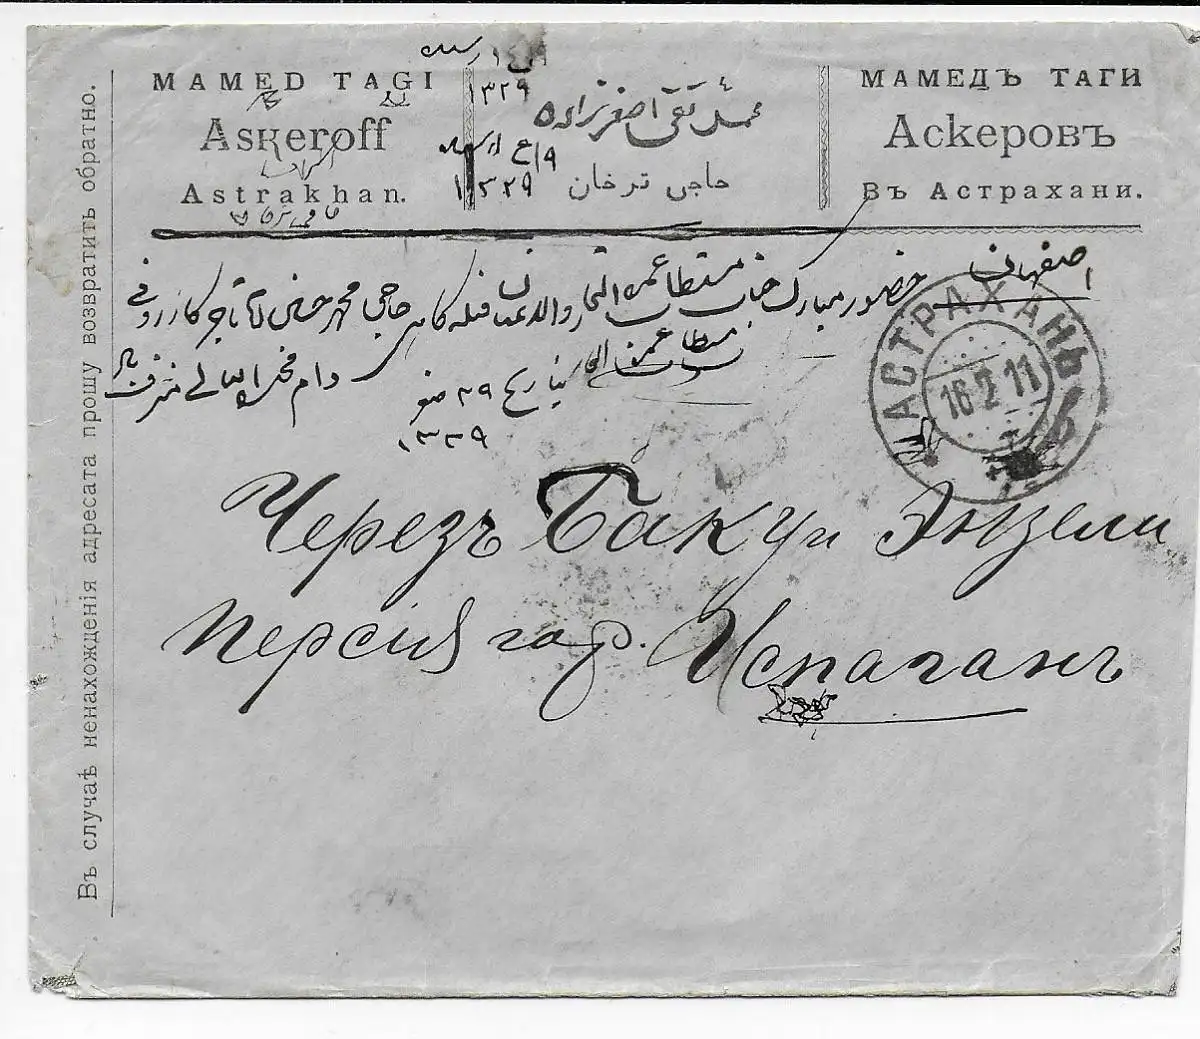 MAMED TAGI
Askeroff
Astrakhan.
رسید
۱۳۲۹
محمد تقی اصغرزاده
۱۳۲۹
حاجی ترخان
МАМЕДЪ ТАГИ
Аскеровъ
Въ Астрахани.
Въ случаѣ ненахожденія адресата прошу возвратить обратно.
اصفهان
حضور مبارک جناب مستطاب عمدة التجار والاعیان قبله گاهی حاجی محمد حسن تاجر کازرونی
دام مجده العالی مشرف باد
بتاریخ ۲۹ صفر
۱۳۲۹
АСТРАХАНЬ
16 2 11
Черезъ Баку и Энзели
Персія гор. Испагань